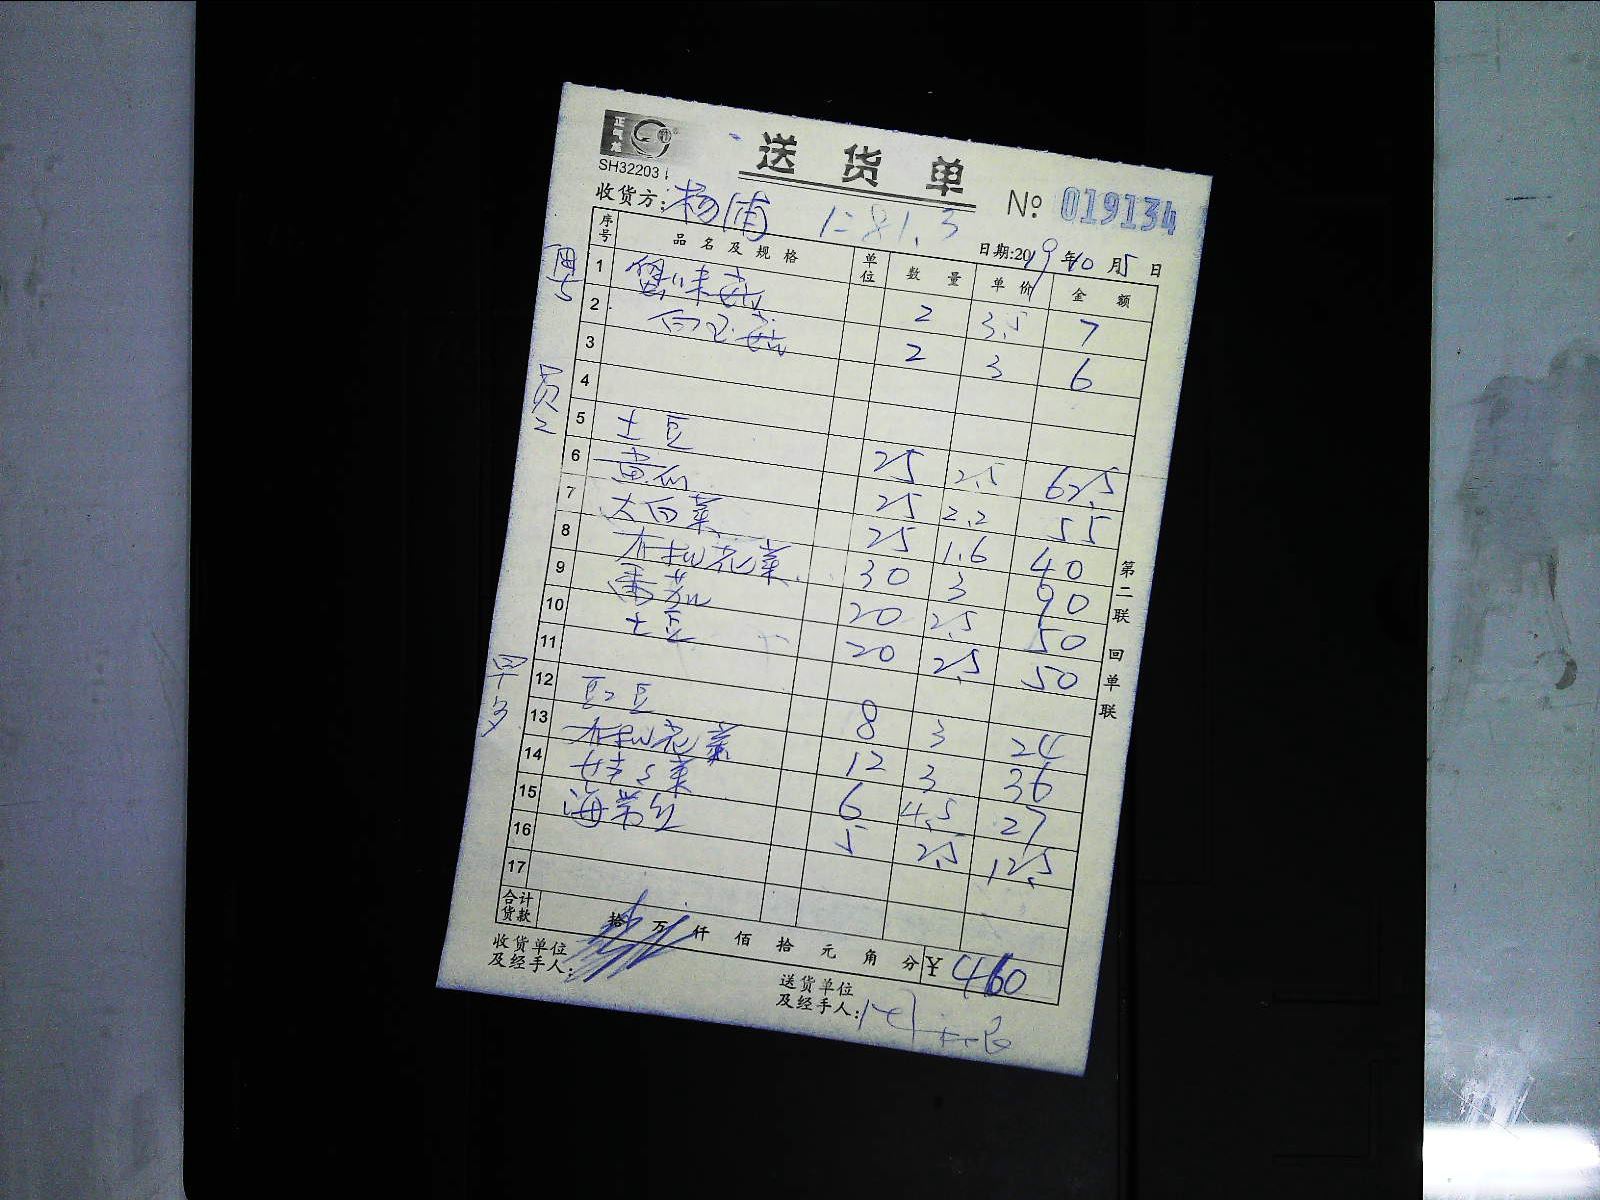 正气龙
送货单
SH32203
№ 019134
收货方:杨浦
日期:2019年10月5日
序号 品名及规格 单位 数量 单价 金额
1 蟹味菇 2 3.5 7
2 白玉菇 2 3 6
3
4
5 土豆 25 2.5 62.5
6 黄瓜 25 2.2 55
7 大白菜 25 1.6 40
8 有机花菜 30 3 90
9 番茄 20 2.5 50
10 土豆 20 2.5 50
11
12 豇豆 8 3 24
13 有机花菜 12 3 36
14 6 4.5 27
15 海带丝 5 2.5 12.5
16
17
合计货款 拾万仟佰拾元角分 ¥460
收货单位及经手人:
送货单位及经手人:
第二联 回单联
员工